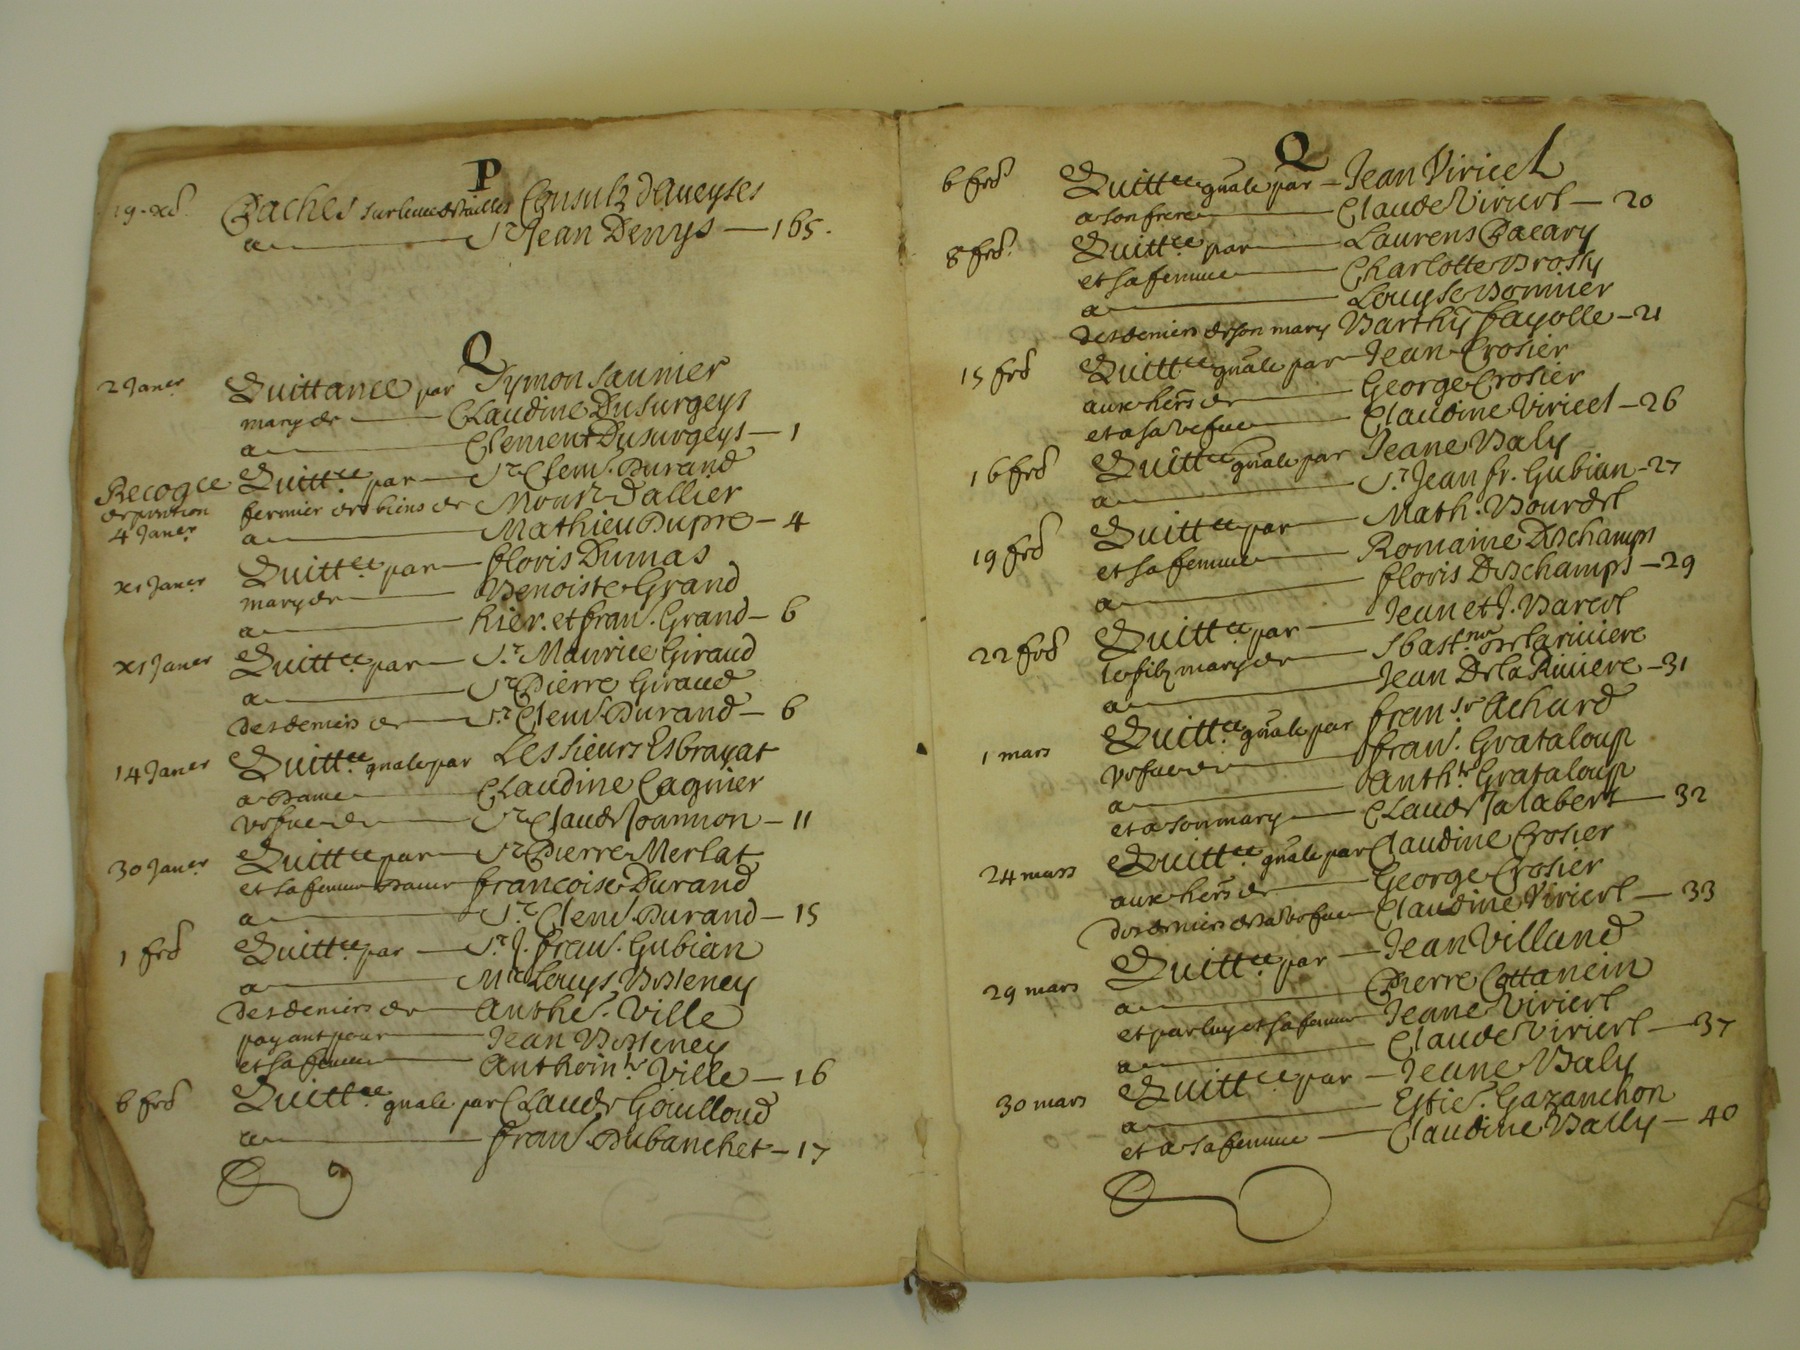 P
19 xb.
Paches sur leuee de tailles Consulz d'Aueyses
a Sr Jean Denys — 165.
Q
2 Janer Quittance par Symon Saunier
mary de Claudine Dusurgeys
a Clement Dusurgeys — 1
Recogce Quittce par Sr Clem. Durand
de pention fermier des biens de Monsr Dallier
4 Janer a Mathieu Dupre — 4
xi Janer Quittce par floris Dumas
mary de Benoiste Grand
a hier. et fran. Grand — 6
xi Janer Quittce par Sr Maurice Giraud
a Sr Pierre Giraud
des deniers de Sr Clem. Durand — 6
14 Janer Quittce gnale par Les sieurs Esbrayat
a Dame Claudine Cagnier
vefue de Sr Claude Joannon — 11
30 Janer Quittce par Sr Pierre Merlat
et sa femme Dame francoise Durand
a Sr Clem. Durand — 15
1 frd Quittce par Sr J. fran. Gubian
a Mre Louys Bisteney
des deniers de Anthe. Ville
payant pour Jean Bisteney
et sa femme Anthointe Ville — 16
6 frd Quittce gnale par Claude Goulloud
a fran. Dubanchet — 17
Q
6 frd Quittce gnale par Jean Viricel
a son frere Claude Viricel — 20
8 frd. Quittce par Laurens Pacary
et sa femme Charlotte Brossy
a Louyse Bonnier
des deniers de son mary Barthy fayolle — 21
15 frd Quittce gnale par Jean Crosier
aux hers de George Crosier
et a sa vefue Claudine Viricel — 26
16 frd Quittce gnale par Jeane Baly
a Sr Jean fr. Gubian — 27
19 frd Quittce par Math. Bourdel
et sa femme Romaine Deschamps
a floris Deschamps — 29
22 frd Quittce par Jean et J. Barcel
le filz mary de Sbastne de la riuiere
a Jean De la Riuiere — 31
1 mars Quittce gnale par franse Achard
vefue de fran. Grataloup
a Anthte Grataloup
et a son mary Claude Jalabert — 32
24 mars Quittce gnale par Claudine Crosier
aux hers de George Crosier
des deniers de sa vefue Claudine Viricel — 33
29 mars Quittce par Jean Villand
a Pierre Cottancin
et par luy et sa femme Jeane Viricel
a Claude Viricel — 37
30 mars Quittce par Jeane Baly
a Estie. Gazanchon
et a sa femme Claudine Bally — 40